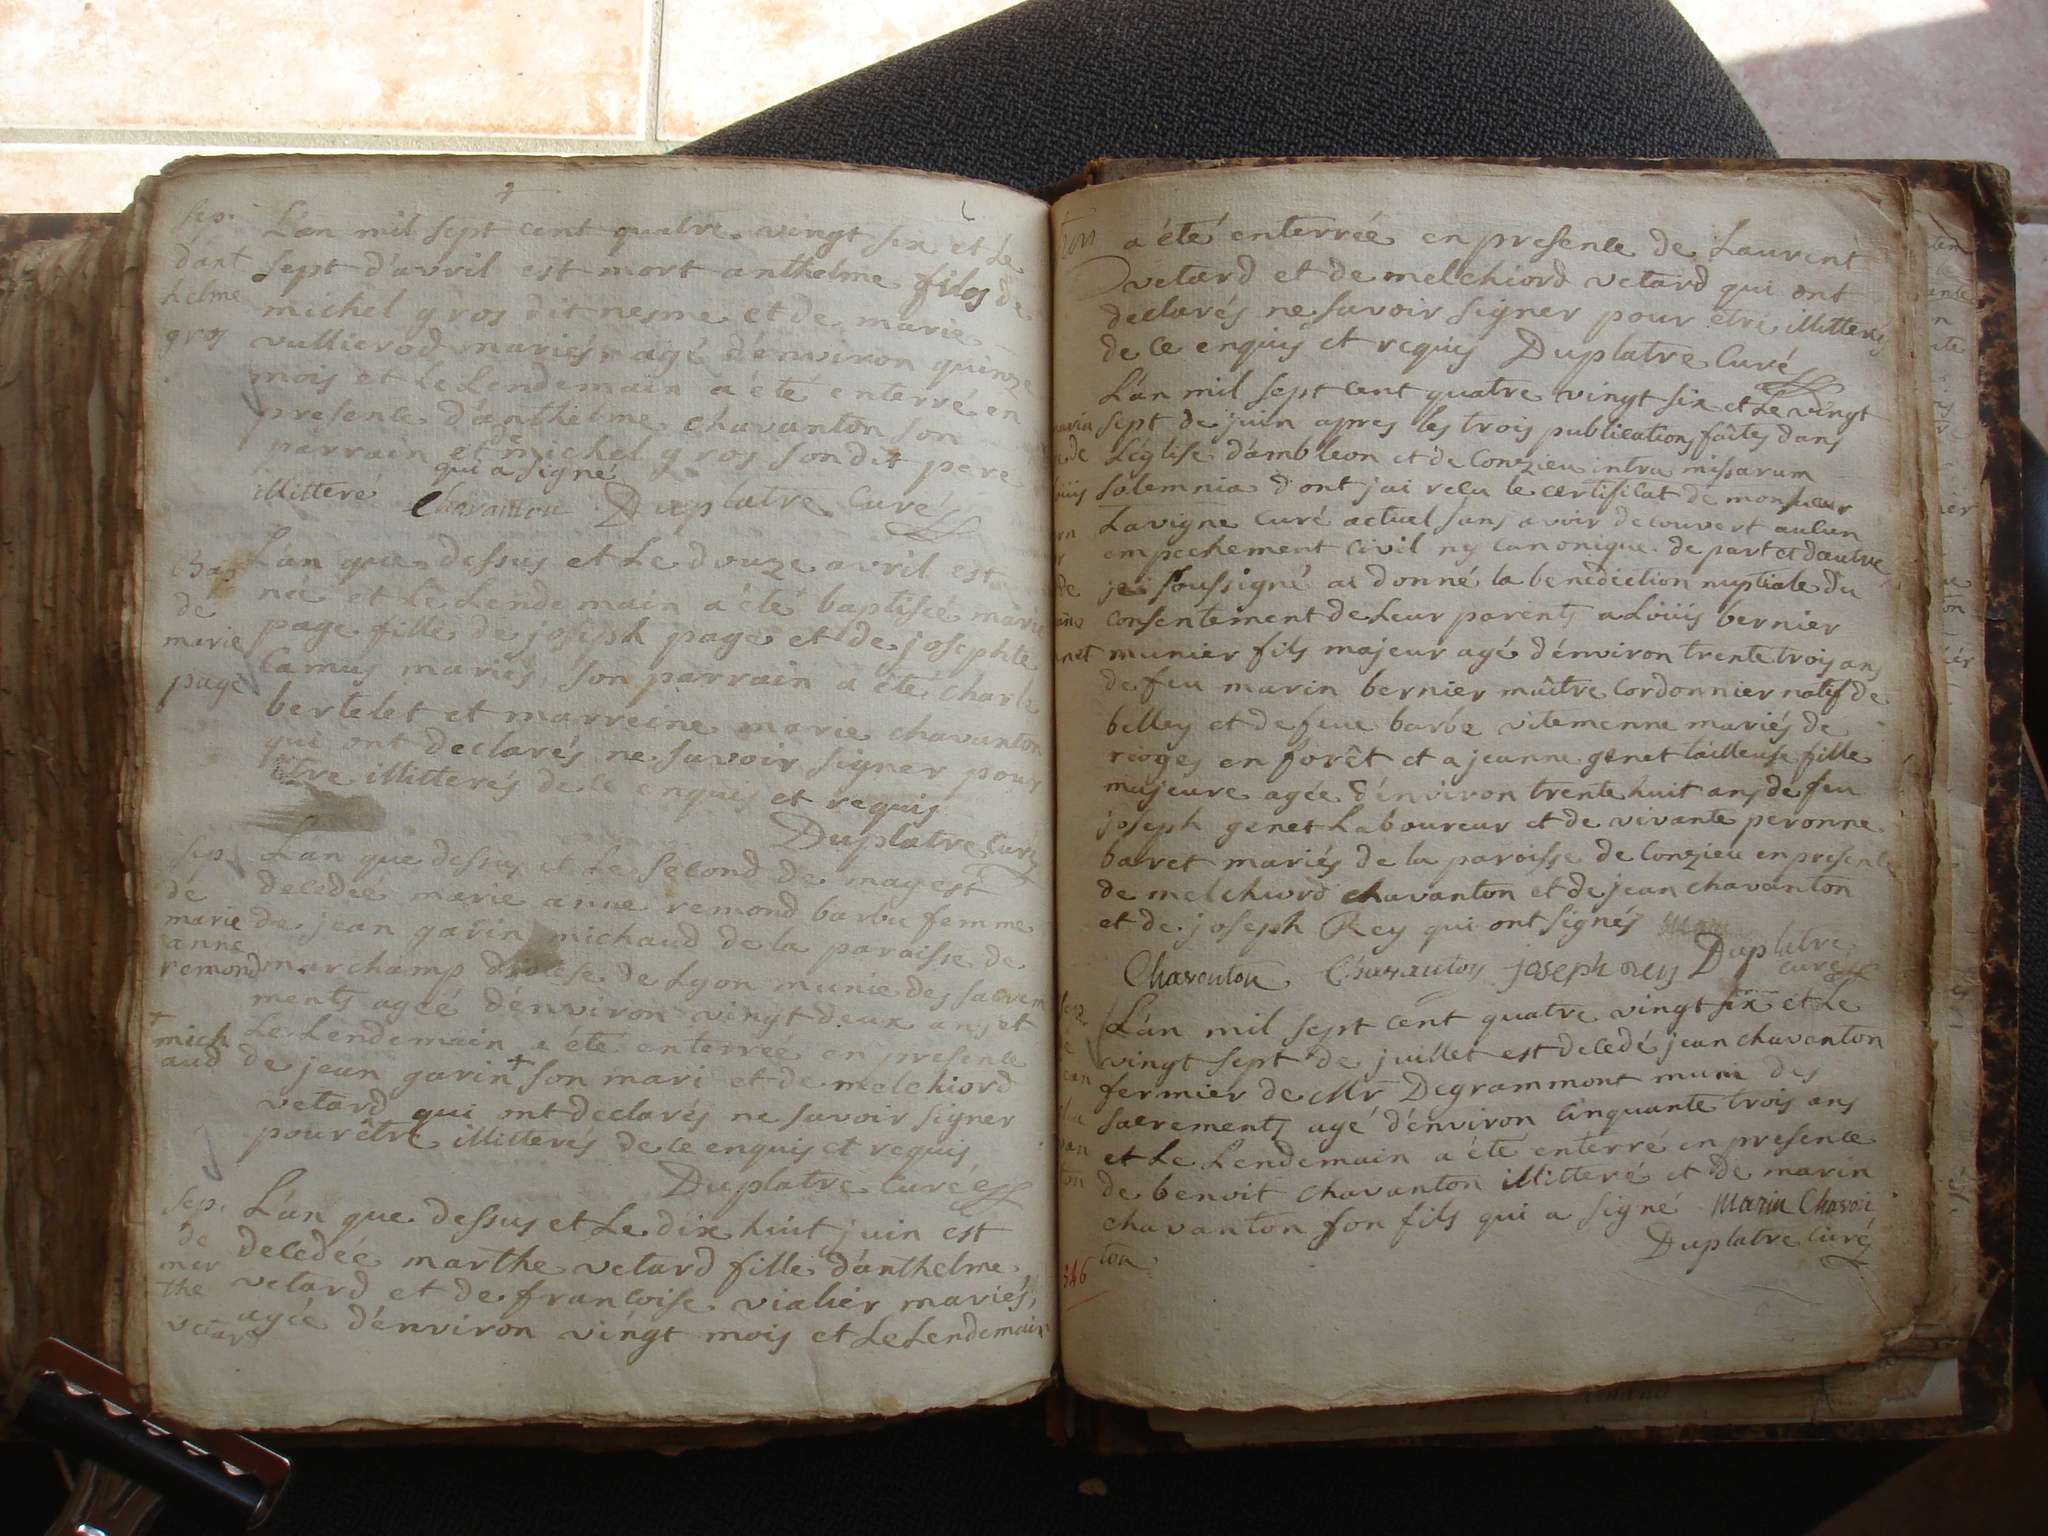 sep.
dant
helme
gros
L'an mil sept cent quatre vingt six et le
sept d'avril est mort anthelme fils de
michel gros dit nesme et de marie
vullierod mariés agé d'environ quinze
mois et le Lendemain a été enterré en
presence d'anthelme chavanton son
parrain et de michel gros sondit pere
qui a signé
illitteré Chavanton Duplatre Curé
bap
de
marie
page
L'an que dessus et le douze avril est
née et le Lendemain a été baptisée marie
page fille de joseph page et de josephte
Camus mariés, son parrain a été charle
bertelet et marreine marie chavanton
qui ont declarés ne savoir signer pour
être illitterés de ce enquis et requis
Duplatre Curé
sep.
de
marie
anne
remond
+
mich
aud
L'an que dessus et le second de may est
decedée marie anne remond barbu femme
de jean garin michaud de la paroisse de
marchamp diocese de Lyon munie des sacrem
ments ageé d'environ vingt deux ans et
Le Lendemain a été enterreé en presence
de jean garin + son mari et de melchiord
vetard qui ont declarés ne savoir signer
pour être illitterés de ce enquis et requis
Duplatre Curé
sep.
de
mar
the
vetard
L'an que dessus et Le dix huit juin est
decedée marthe vetard fille d'anthelme
vetard et de francoise vialier mariés,
agée d'environ vingt mois et Le Lendemain
a été enterrée en presence de Laurent
vetard et de melchiord vetard qui ont
declarés ne savoir signer pour être illitterés
de ce enquis et requis Duplatre Curé
L'an mil sept cent quatre vingt six et Le vingt
sept de juin apres les trois publications faites dans
L'église d'ambleon et de Conzieu intra missarum
solemnia dont j'ai recu le certificat de monsieur
Lavigne Curé actuel sans avoir decouvert aucun
empechement civil ny canonique de part et d'autre
je soussigné ai donné la benediction nuptiale du
consentement de Leur parents a Loüis bernier
munier fils majeur agé d'environ trente trois ans
de feu marin bernier maître Cordonnier natif de
belley et de feue barbe vitemenne mariés de
rioges en forêt et a jeanne genet tailleuse fille
majeure agée d'environ trente huit ans de feu
joseph genet Laboureur et de vivante peronne
barret mariés de la paroisse de Conzieu en presence
de melchiord chavanton et de jean chavanton
et de joseph Rey qui ont signés
Chavanton Chavanton joseph Rey Duplatre
curé
L'an mil sept cent quatre vingt six et Le
vingt sept de juillet est decedé jean chavanton
fermier de Mr Degrammont muni des
sacrements agé d'environ Cinquante trois ans
et Le Lendemain a été enterré en presence
de benoit chavanton illitteré et de marin
chavanton son fils qui a signé Marin Chavan
ton
Duplatre Curé